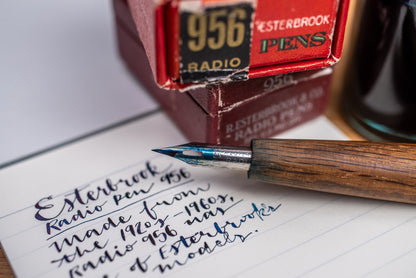 956
RADIO
ESTERBROOK
PENS
956
R.ESTERBROOK & CO.
RADIO PENS
Esterbrook
Radio Pen 956
Made from
the 1920s-1960s,
Radio 956 was,
of Esterbrook's
models.